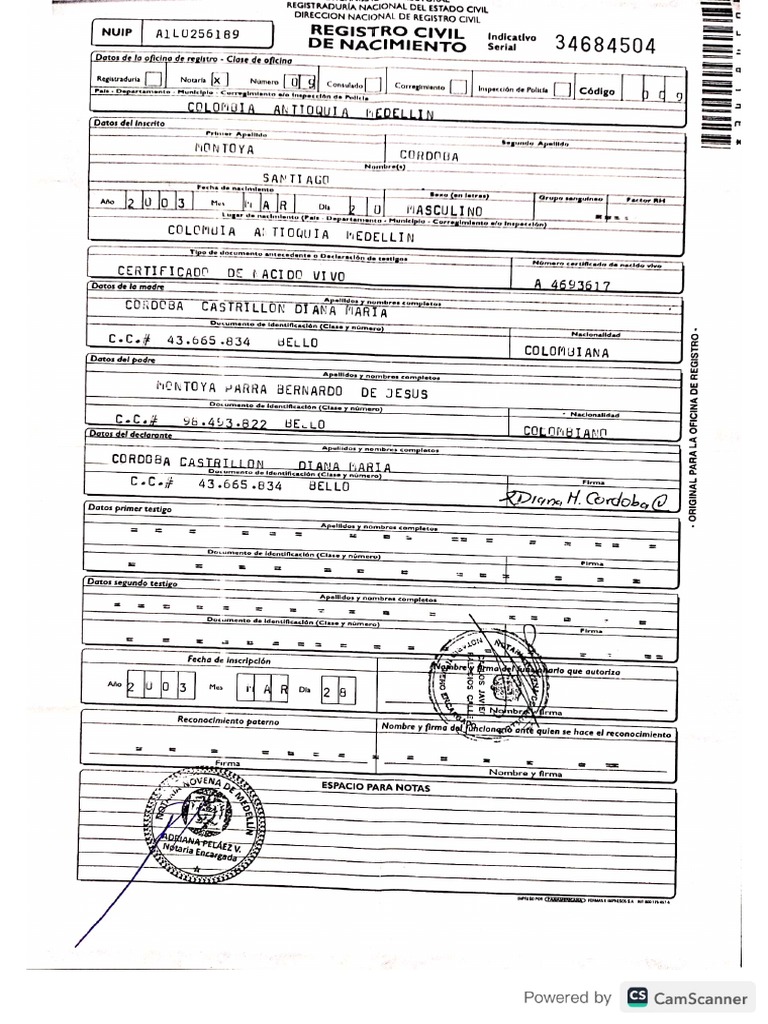 REGISTRADURÍA NACIONAL DEL ESTADO CIVIL
DIRECCION NACIONAL DE REGISTRO CIVIL
NUIP A1LU256189
REGISTRO CIVIL
DE NACIMIENTO
Indicativo
Serial 34684504
Datos de la oficina de registro - Clase de oficina
Registraduría Notaría X Número 09 Consulado Corregimiento Inspección de Policía Código 009
País - Departamento - Municipio - Corregimiento e/o Inspección de Policía
COLOMBIA ANTIOQUIA MEDELLIN
Datos del inscrito
Primer Apellido Segundo Apellido
MONTOYA CORDOBA
Nombre(s)
SANTIAGO
Fecha de nacimiento Sexo (en letras) Grupo sanguíneo Factor RH
Año 2003 Mes MAR Día 20 MASCULINO
Lugar de nacimiento (País - Departamento - Municipio - Corregimiento e/o Inspección)
COLOMBIA ANTIOQUIA MEDELLIN
Tipo de documento antecedente o Declaración de testigos Número certificado de nacido vivo
CERTIFICADO DE NACIDO VIVO A 4693617
Datos de la madre
Apellidos y nombres completos
CORDOBA CASTRILLON DIANA MARIA
Documento de Identificación (Clase y número) Nacionalidad
C.C.# 43.665.834 BELLO COLOMBIANA
Datos del padre
Apellidos y nombres completos
MONTOYA PARRA BERNARDO DE JESUS
Documento de Identificación (Clase y número) Nacionalidad
C.C.# 98.493.822 BELLO COLOMBIANO
Datos del declarante
Apellidos y nombres completos
CORDOBA CASTRILLON DIANA MARIA
Documento de Identificación (Clase y número) Firma
C.C.# 43.665.834 BELLO Diana M. Cordoba C
Datos primer testigo
Apellidos y nombres completos
Documento de Identificación (Clase y número) Firma
Datos segundo testigo
Apellidos y nombres completos
Documento de Identificación (Clase y número) Firma
Fecha de inscripción Nombre y firma del funcionario que autoriza
Año 2003 Mes MAR Día 28
CARLOS JAVIER PALACIOS CALLE
NOTARIO NOVENO ENCARGADO
Nombre y firma
Reconocimiento paterno Nombre y firma del funcionario ante quien se hace el reconocimiento
Firma Nombre y firma
ESPACIO PARA NOTAS
NOTARIA NOVENA DE MEDELLIN
ADRIANA PELÁEZ V.
Notaria Encargada
- ORIGINAL PARA LA OFICINA DE REGISTRO -
Powered by CS CamScanner